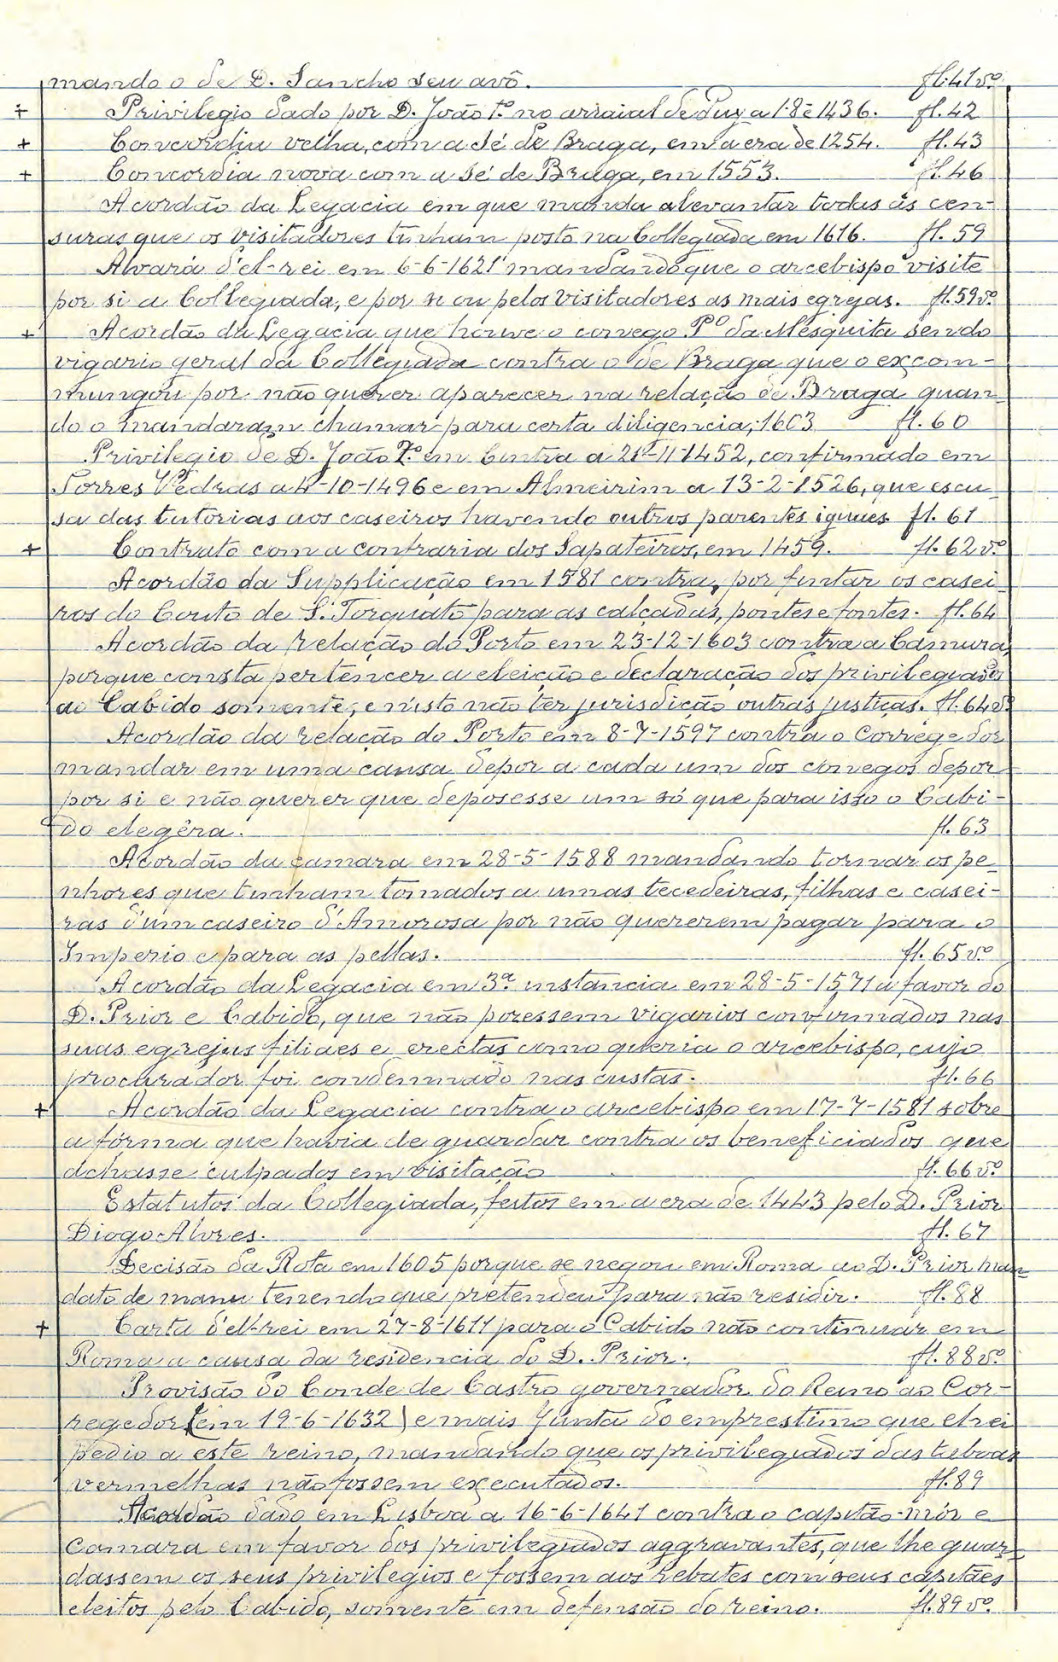 mando o de D. Sancho seu avô. fl. 41 vº
+ Privilegio dado por D. João 1º no arraial de Tuy a 1-8-1436. fl. 42
+ Concordia velha, com a Sé de Braga, em a era de 1254. fl. 43
+ Concordia nova com a Sé de Braga, em 1553. fl. 46
Acordão da Legacia em que manda alevantar todas as cen-
suras que os visitadores tinham posto na Collegiada em 1616. fl. 59
Alvará d'el-rei em 6-6-1621 mandando que o arcebispo visite
por si a Collegiada, e por si ou pelos visitadores as mais egrejas. fl. 59 vº
+ Acordão da Legacia que houve o conego Pº da Mesquita sendo
vigario geral da Collegiada contra o de Braga que o excom-
mungou por não querer aparecer na relação de Braga quan-
do o mandaram chamar para certa diligencia, 1603 fl. 60
Privilegio de D. João 2º em Cintra a 21-11-1452, confirmado em
Torres Vedras a 4-10-1496 e em Almeirim a 13-2-1526, que escu-
sa das tutorias aos caseiros havendo outros parentes iguaes fl. 61
+ Contrato com a confraria dos Sapateiros, em 1459. fl. 62 vº
Acordão da Supplicação em 1581 contra, por fintar os casei-
ros do Couto de S. Torquato para as calçadas, pontes e fontes. fl. 64
Acordão da relação do Porto em 23-12-1603 contra a Camara,
porque consta pertencer a eleição e declaração dos privilegiados
ao Cabido somente, e n'isto não ter jurisdição outras justiças. fl. 64 vº
Acordão da relação do Porto em 8-7-1597 contra o Corregedor
mandar em uma causa depor a cada um dos conegos depor
por si e não querer que deposesse um só que para isso o Cabi-
do elegêra. fl. 63
Acordão da camara em 28-5-1588 mandando tornar os pe-
nhores que tinham tomados a umas tecedeiras, filhas e casei-
ras d'um caseiro d'Amorosa por não quererem pagar para o
Imperio e para as pellas. fl. 65 vº
Acordão da Legacia em 3ª instancia em 28-5-1571 a favor do
D. Prior e Cabido, que não pozessem vigarios confirmados nas
suas egrejas filiaes e erectas como queria o arcebispo, cujo
procurador foi condemnado nas custas. fl. 66
+ Acordão da Legacia contra o arcebispo em 17-7-1581 sobre
a forma que havia de guardar contra os beneficiados que
achasse culpados em visitação fl. 66 vº
Estatutos da Collegiada, feitos em a era de 1443 pelo D. Prior
Diogo Alvres. fl. 67
Decisão da Rota em 1605 porque se negou em Roma ao D. Prior man-
dato de manu tenendo que pretendeu para não residir. fl. 88
+ Carta d'el-rei em 27-8-1611 para o Cabido não continuar em
Roma a causa da residencia do D. Prior. fl. 88 vº
Provisão do Conde de Castro governador do Reino ao Cor-
regedor (em 19-6-1632) e mais Junta do emprestimo que el-rei
pedio a este reino, mandando que os privilegiados das taboas
vermelhas não fossem executados. fl. 89
Acordão dado em Lisboa a 16-6-1641 contra o capitão-mór e
Camara em favor dos privilegiados aggravantes, que lhe guar-
dassem os seus privilegios e fossem aos rebates com seus capitães
eleitos pelo Cabido, somente em defensão do reino. fl. 89 vº